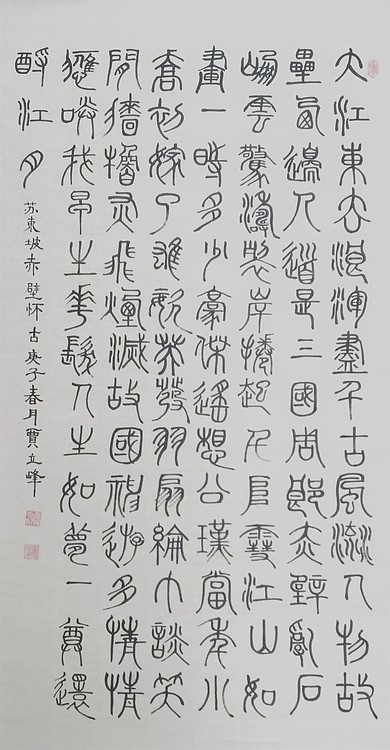 大江東去浪淘盡千古風流人物故
壘西邊人道是三國周郎赤壁亂石
崩雲驚濤裂岸捲起千堆雪江山如
畫一時多少豪傑遙想公瑾當年小
喬初嫁了雄姿英發羽扇綸巾談笑
間檣櫓灰飛煙滅故國神遊多情情
應笑我早生華髮人生如夢一尊還
酹江月
苏東坡赤壁怀古庚子春月賈立峰